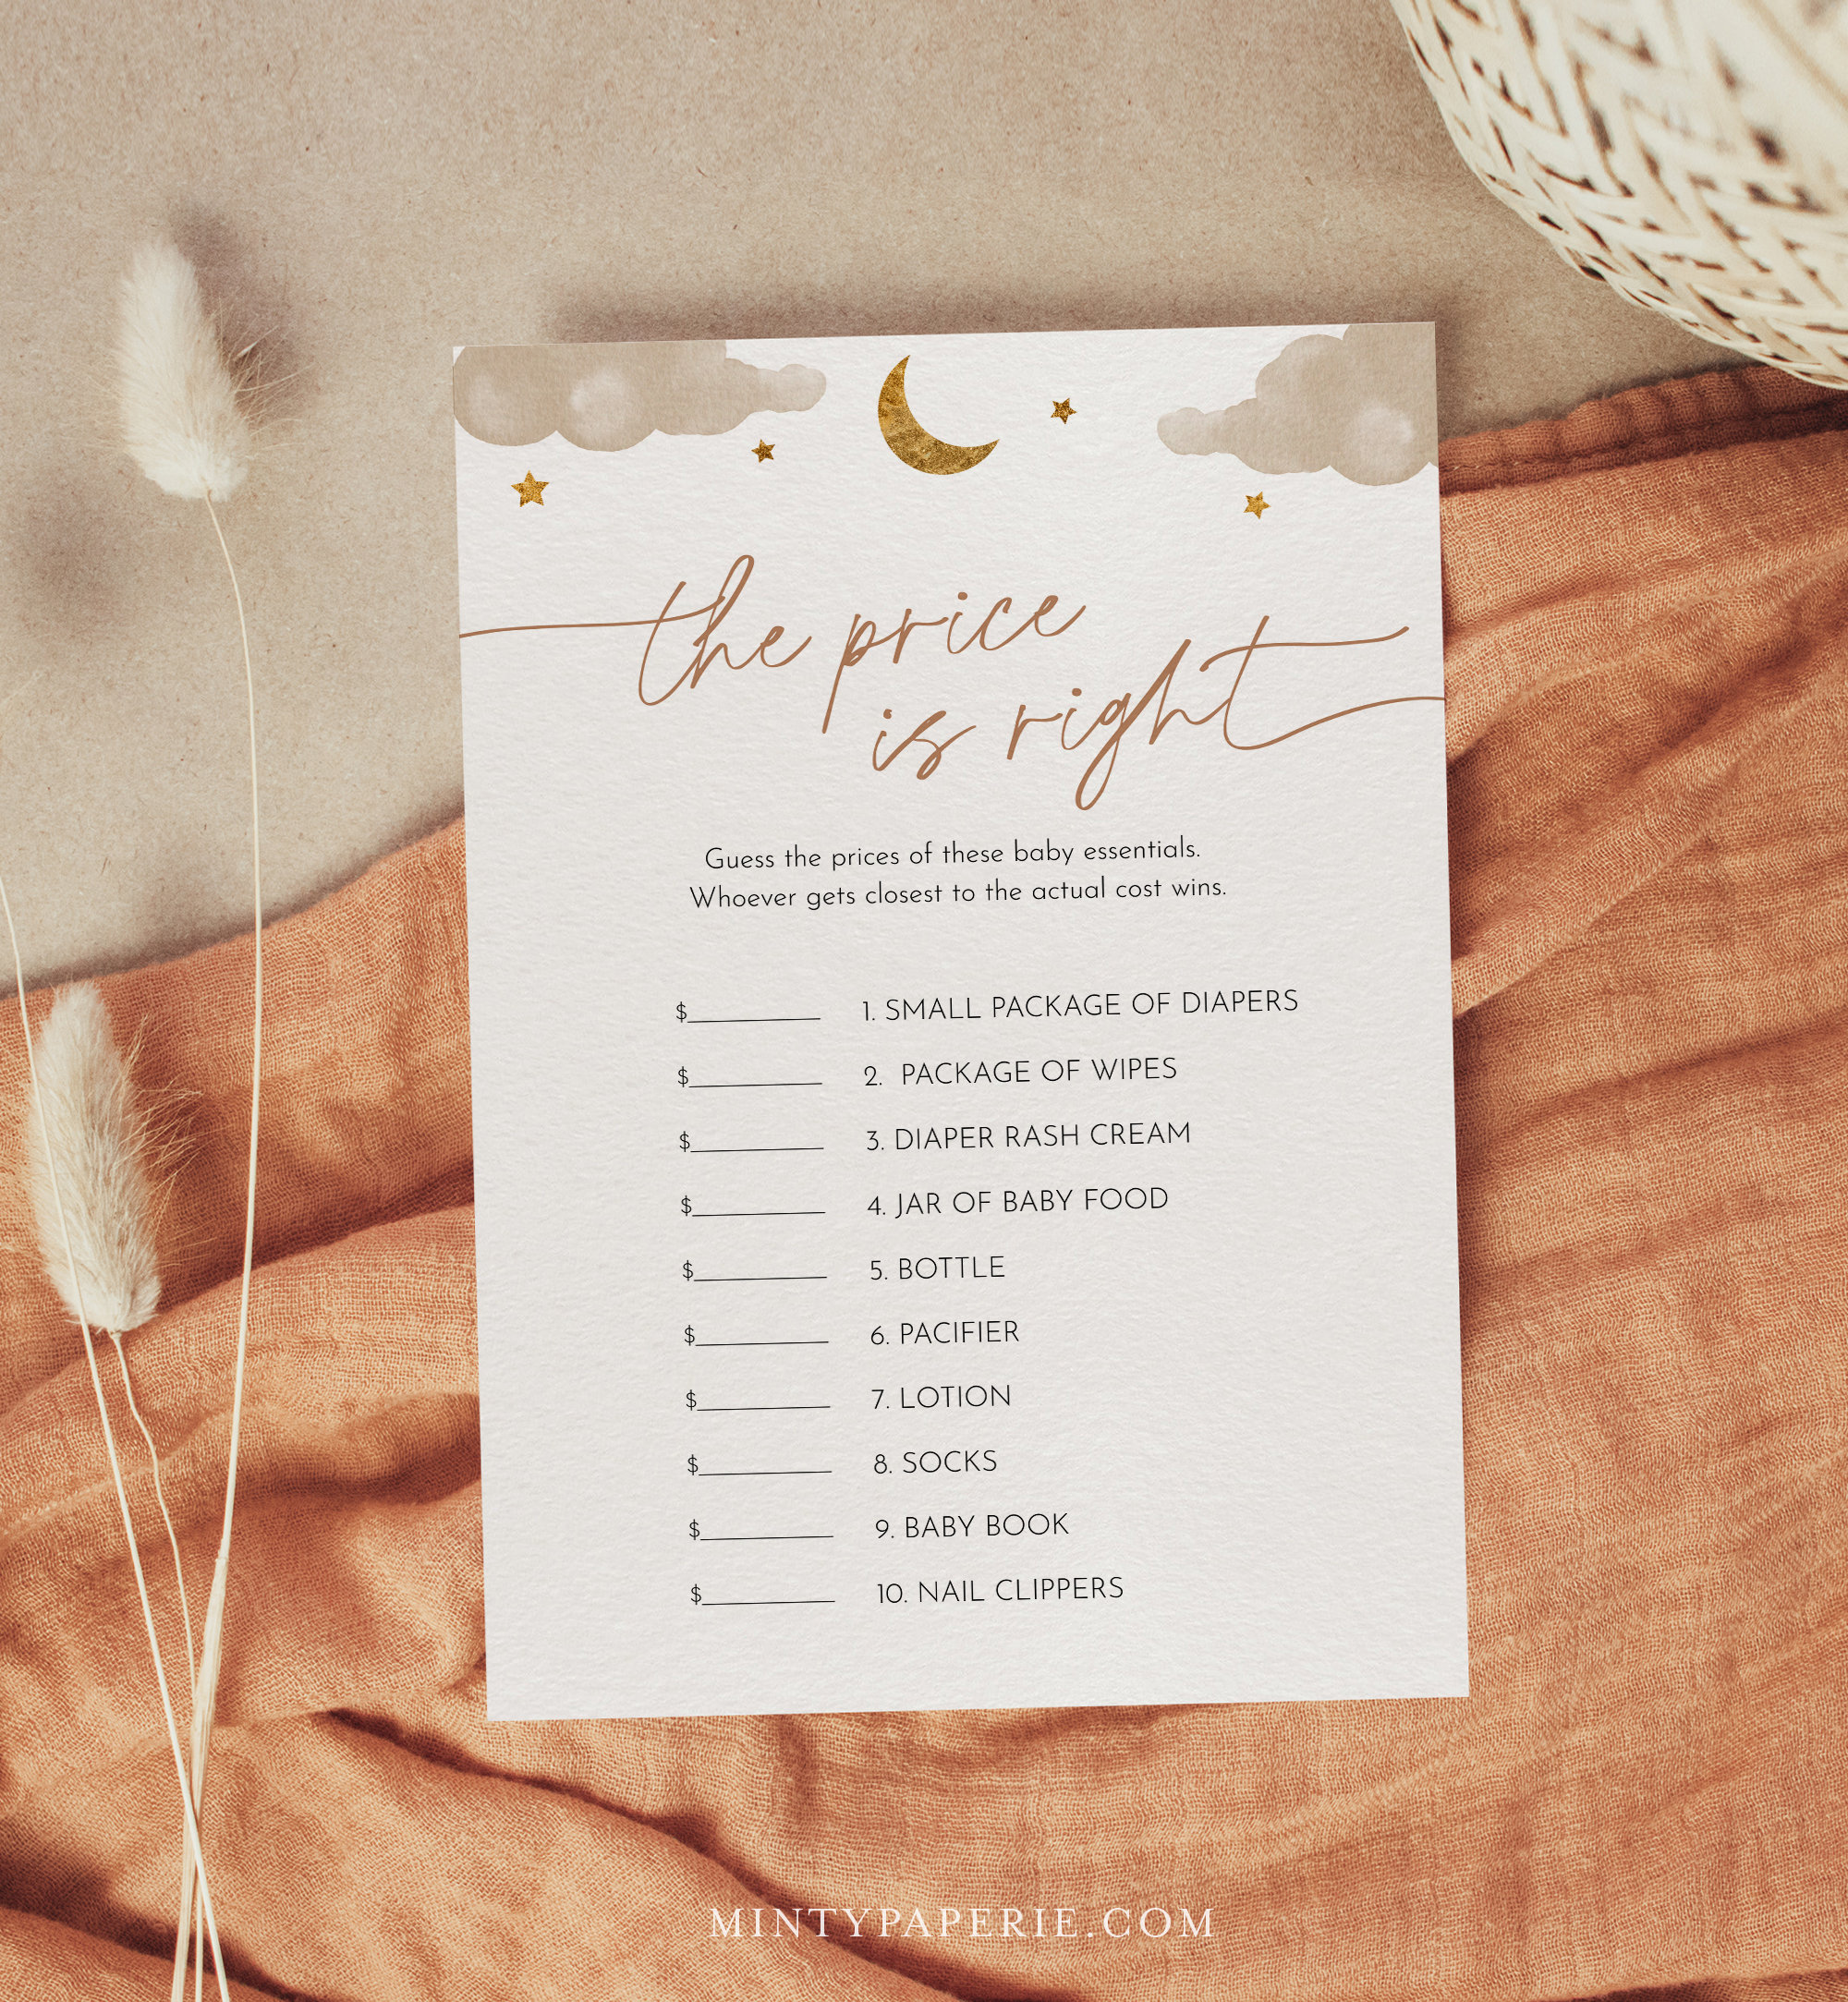 the price
is right
Guess the prices of these baby essentials.
Whoever gets closest to the actual cost wins.
$__________ 1. SMALL PACKAGE OF DIAPERS
$__________ 2. PACKAGE OF WIPES
$__________ 3. DIAPER RASH CREAM
$__________ 4. JAR OF BABY FOOD
$__________ 5. BOTTLE
$__________ 6. PACIFIER
$__________ 7. LOTION
$__________ 8. SOCKS
$__________ 9. BABY BOOK
$__________ 10. NAIL CLIPPERS
MINTYPAPERIE.COM